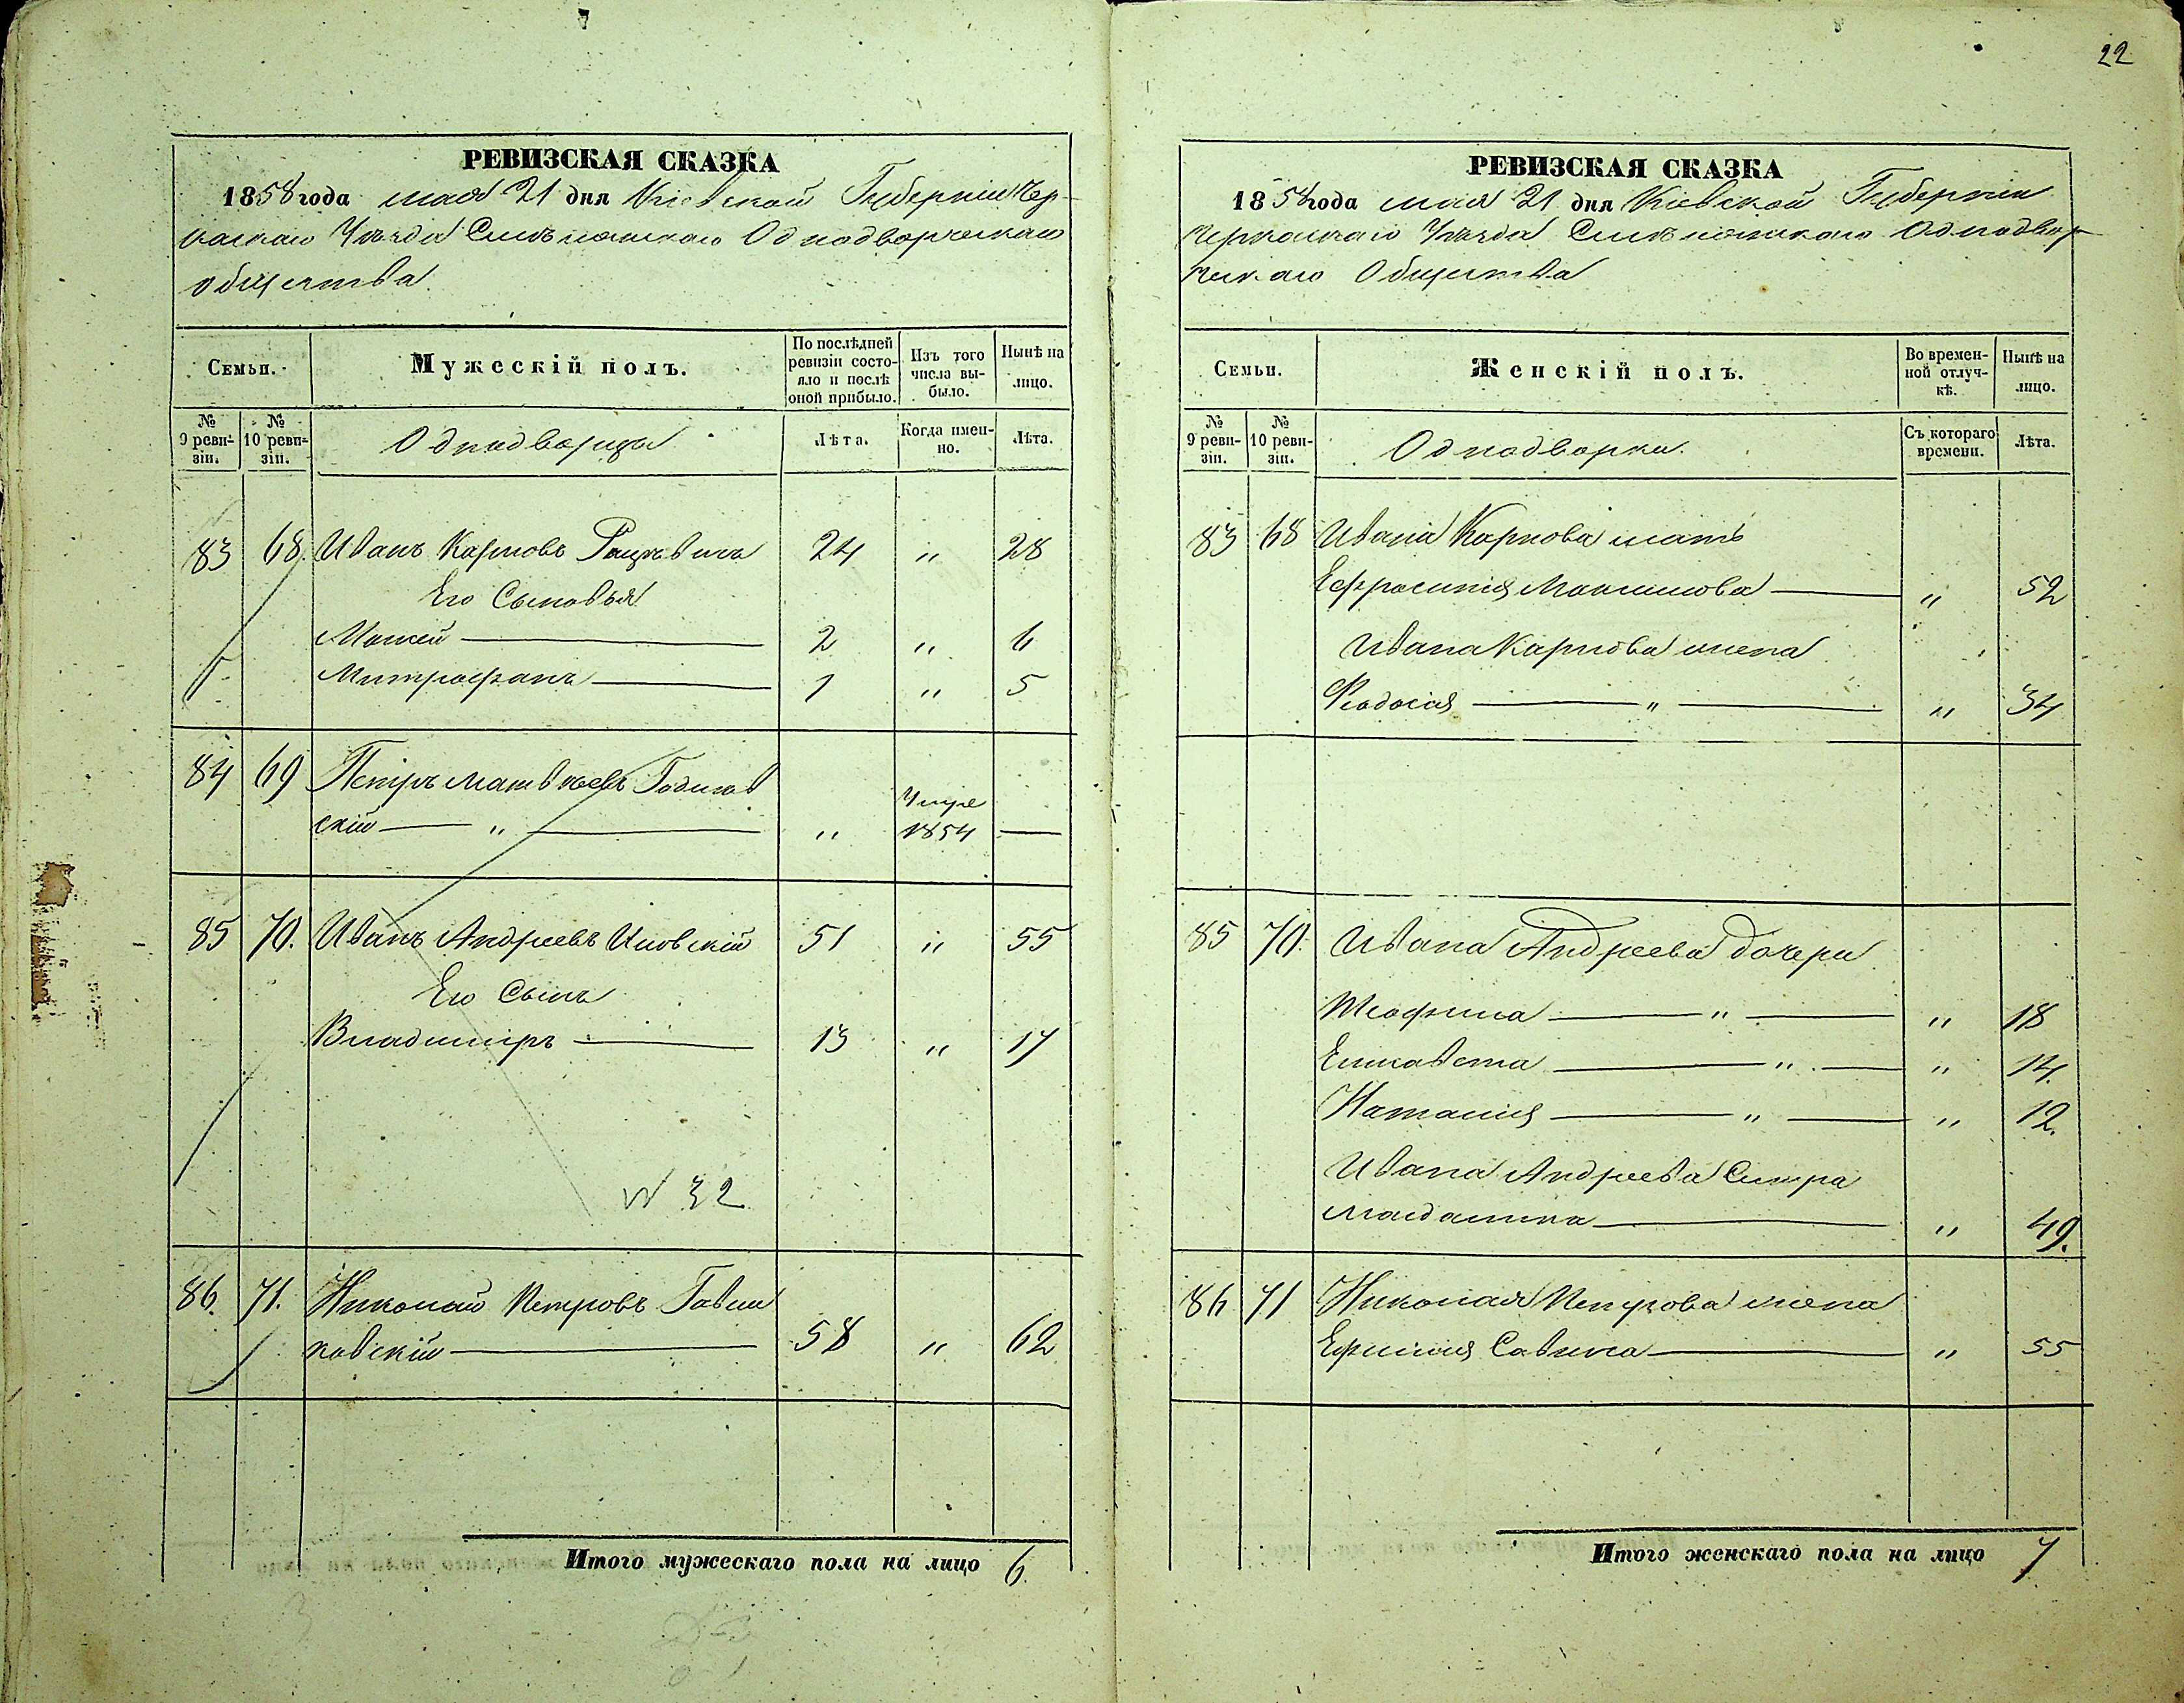 22
РЕВИЗСКАЯ СКАЗКА
1858 года мая 21 дня Кіевской Губерніи Чер-
каскаго Уѣзда Смѣлянскаго Однодворческаго
общества
Семьи.
Мужескій полъ.
По послѣдней ревизіи состояло и послѣ оной прибыло.
Изъ того числа выбыло.
Нынѣ на лицо.
№ 9 ревизіи.
№ 10 ревизіи.
Однодворцы
Лѣта.
Когда именно.
Лѣта.
83 68. Иванъ Карповъ 24 " 28
Его Сыновья
Мосѣй 2 " 6
Митрофанъ 1 " 5
84 69 Петръ Матвѣевъ
скій " " Умре 1854 —
85 70. Иванъ Андреевъ 51 " 55
Его Сынъ
Владиміръ 13 " 17
N 32
86. 71. Николай Петровъ
ковскій 58 " 62
Итого мужескаго пола на лицо 6.
РЕВИЗСКАЯ СКАЗКА
1858 года мая 21 дня Кіевской Губерніи
Черкаскаго Уѣзда Смѣлянскаго Однодвор
ческаго Общества
Семьи.
Женскій полъ.
Во временной отлучкѣ.
Нынѣ на лицо.
№ 9 ревизіи.
№ 10 ревизіи.
Однодворки.
Съ котораго времени.
Лѣта.
83 68 Ивана Карпова мать
Ефросинія Максимова " 52
Ивана Карпова жена
Феодосія " " 34
85 70. Ивана Андреева дочери
Теофила " " 18
Елисавета " " 14.
Наталія " " 12.
Ивана Андреева Сестра
Магдалина " 49.
86 71 Николая Петрова жена
Ефимія Савина " 55
Итого женскаго пола на лицо 7